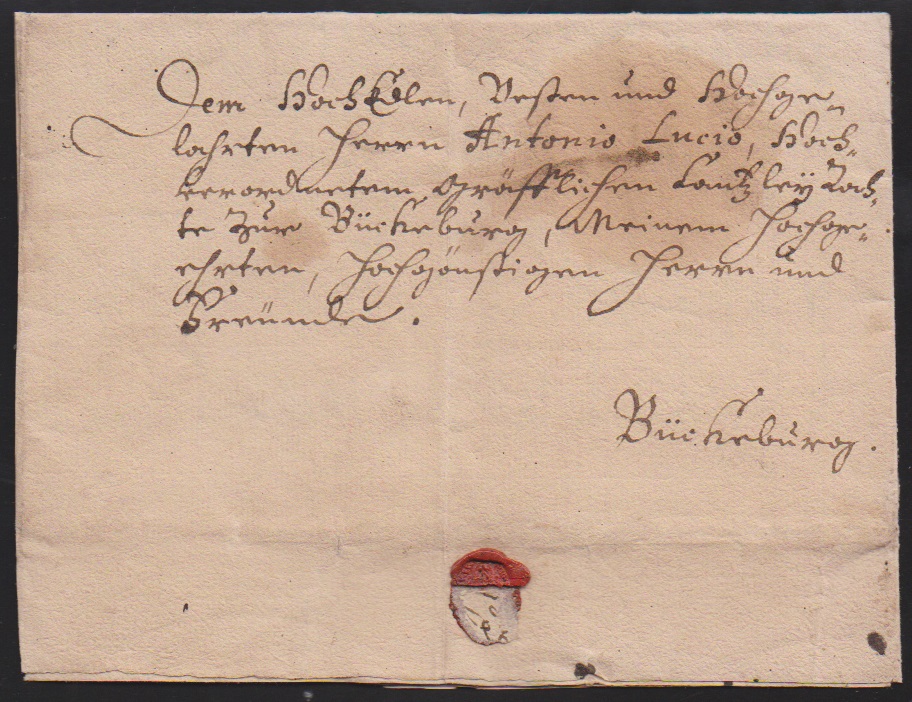 Dem HochEdlen, Vesten und Hochge-
lahrten Herrn Antonio Lucio, Hoch-
verordnetem Gräfflichen Cantzley Rah-
te zur Bückeburg, Meinem Hochge-
ehrten, Hochgönstigen Herrn und
Freünde.
Bückeburg.